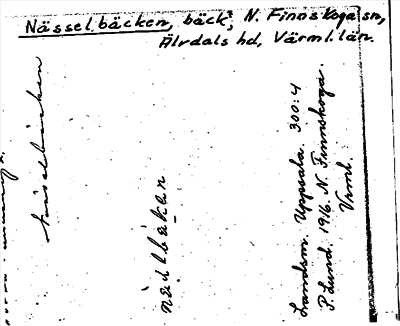 Nässelbäcken, bäck, N. Finnskoga sn,
Älvdals hd, Värml. län.
Nässelbäcken
Landsm. Uppsala 300:4
P. Lund. 1916. N. Finnskoga.
Vrml.